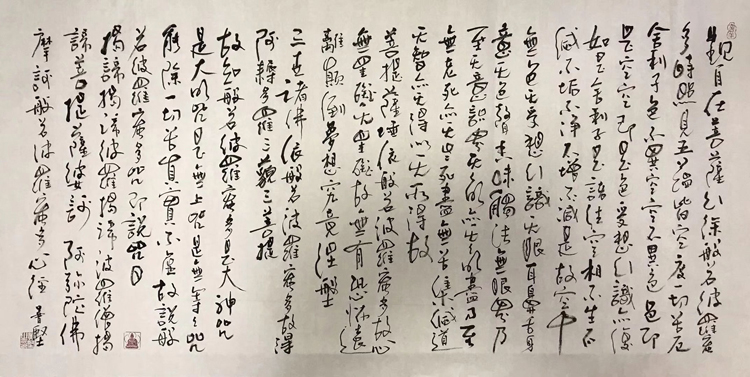 觀自在菩薩行深般若波羅蜜
多時照見五蘊皆空度一切苦厄
舍利子色不異空空不異色色即
是空空即是色受想行識亦復
如是舍利子是諸法空相不生不
滅不垢不淨不增不減是故空中
無色无受想行識无眼耳鼻舌身
意无色聲香味觸法無眼界乃
至无意識界无无明亦无无明盡乃至
無老死亦无老死盡無苦集滅道
无智亦无得以无所得故
菩提薩埵依般若波羅蜜多故心
無罣礙无罣礙故無有恐怖遠
離顛倒夢想究竟涅槃
三世諸佛依般若波羅蜜多故得
阿耨多羅三藐三菩提
故知般若波羅蜜多是大神咒
是大明咒是無上咒是無等等咒
能除一切苦真實不虛故說般
若波羅蜜多咒即說咒曰
揭諦揭諦波羅揭諦波羅僧揭
諦菩提薩婆訶 阿弥陀佛
摩訶般若波羅蜜多心經